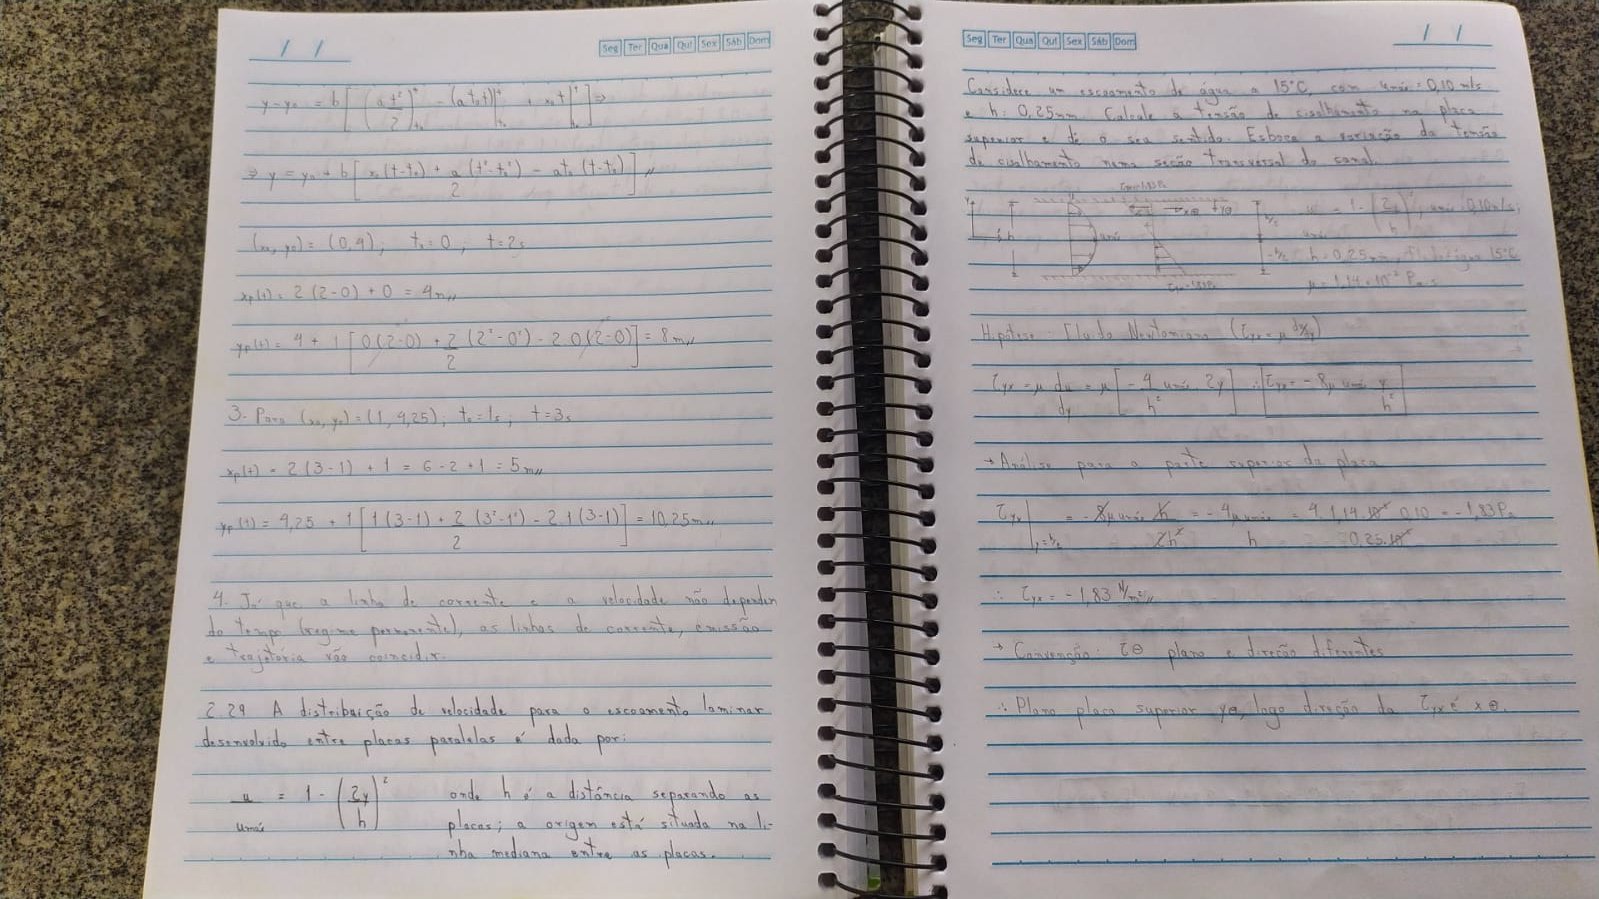 / /
Seg Ter Qua Qui Sex Sáb Dom
y - y₀ = b[(a t²/2)|ᵗₜ₀ - (a t₀ t)|ᵗₜ₀ + x₀ t|ᵗₜ₀] ⇒
⇒ y = y₀ + b[x₀(t-t₀) + a/2 (t²-t₀²) - at₀ (t-t₀)]//
(x₀, y₀) = (0,4); t₀ = 0; t = 2s
xp(t) = 2(2-0) + 0 = 4m//
yp(t) = 4 + 1[0(2-0) + 2/2 (2²-0²) - 2.0(2-0)] = 8m//
3- Para (x₀, y₀) = (1, 4,25); t₀ = 1s; t = 3s
xp(t) = 2(3-1) + 1 = 6-2+1 = 5m//
yp(t) = 4,25 + 1[1(3-1) + 2/2 (3²-1²) - 2.1(3-1)] = 10,25m//
4- Já que a linha de corrente e a velocidade não dependem
do tempo (regime permanente), as linhas de corrente, emissão
e trajetória vão coincidir.
2.29 A distribuição de velocidade para o escoamento laminar
desenvolvido entre placas paralelas é dada por:
u/umáx = 1 - (2y/h)² onde h é a distância separando as
placas; a origem está situada na li-
nha mediana entre as placas.
Seg Ter Qua Qui Sex Sáb Dom
/ /
Considere um escoamento de água a 15°C, com umáx = 0,10 m/s
e h: 0,25mm. Calcule a tensão de cisalhamento na placa
superior e dê o seu sentido. Esboce a variação da tensão
de cisalhamento numa seção transversal do canal.
y h umáx h/2 -h/2
u/umáx = 1 - (2y/h)²; umáx: 0,10m/s;
h = 0,25mm, 15°C
μ = 1,14×10⁻³ Pa.s
Hipótese: Fluido Newtoniano (τyx = μ du/dy)
τyx = μ du/dy = μ[-4 umáx 2y/h²] ∴ τyx = -8μ umáx y/h²
→ Análise para a parte superior da placa
τyx|y=h/2 = -8μ umáx h/2h² = -4μ umáx/h = 4.1,14.10⁻³.0,10/0,25.10⁻³ = -1,83Pa
∴ τyx = -1,83 N/m²//
→ Convenção: τ⊖ plano e direção diferentes
∴ Plano placa superior y⊕, logo direção da τyx é x⊖.